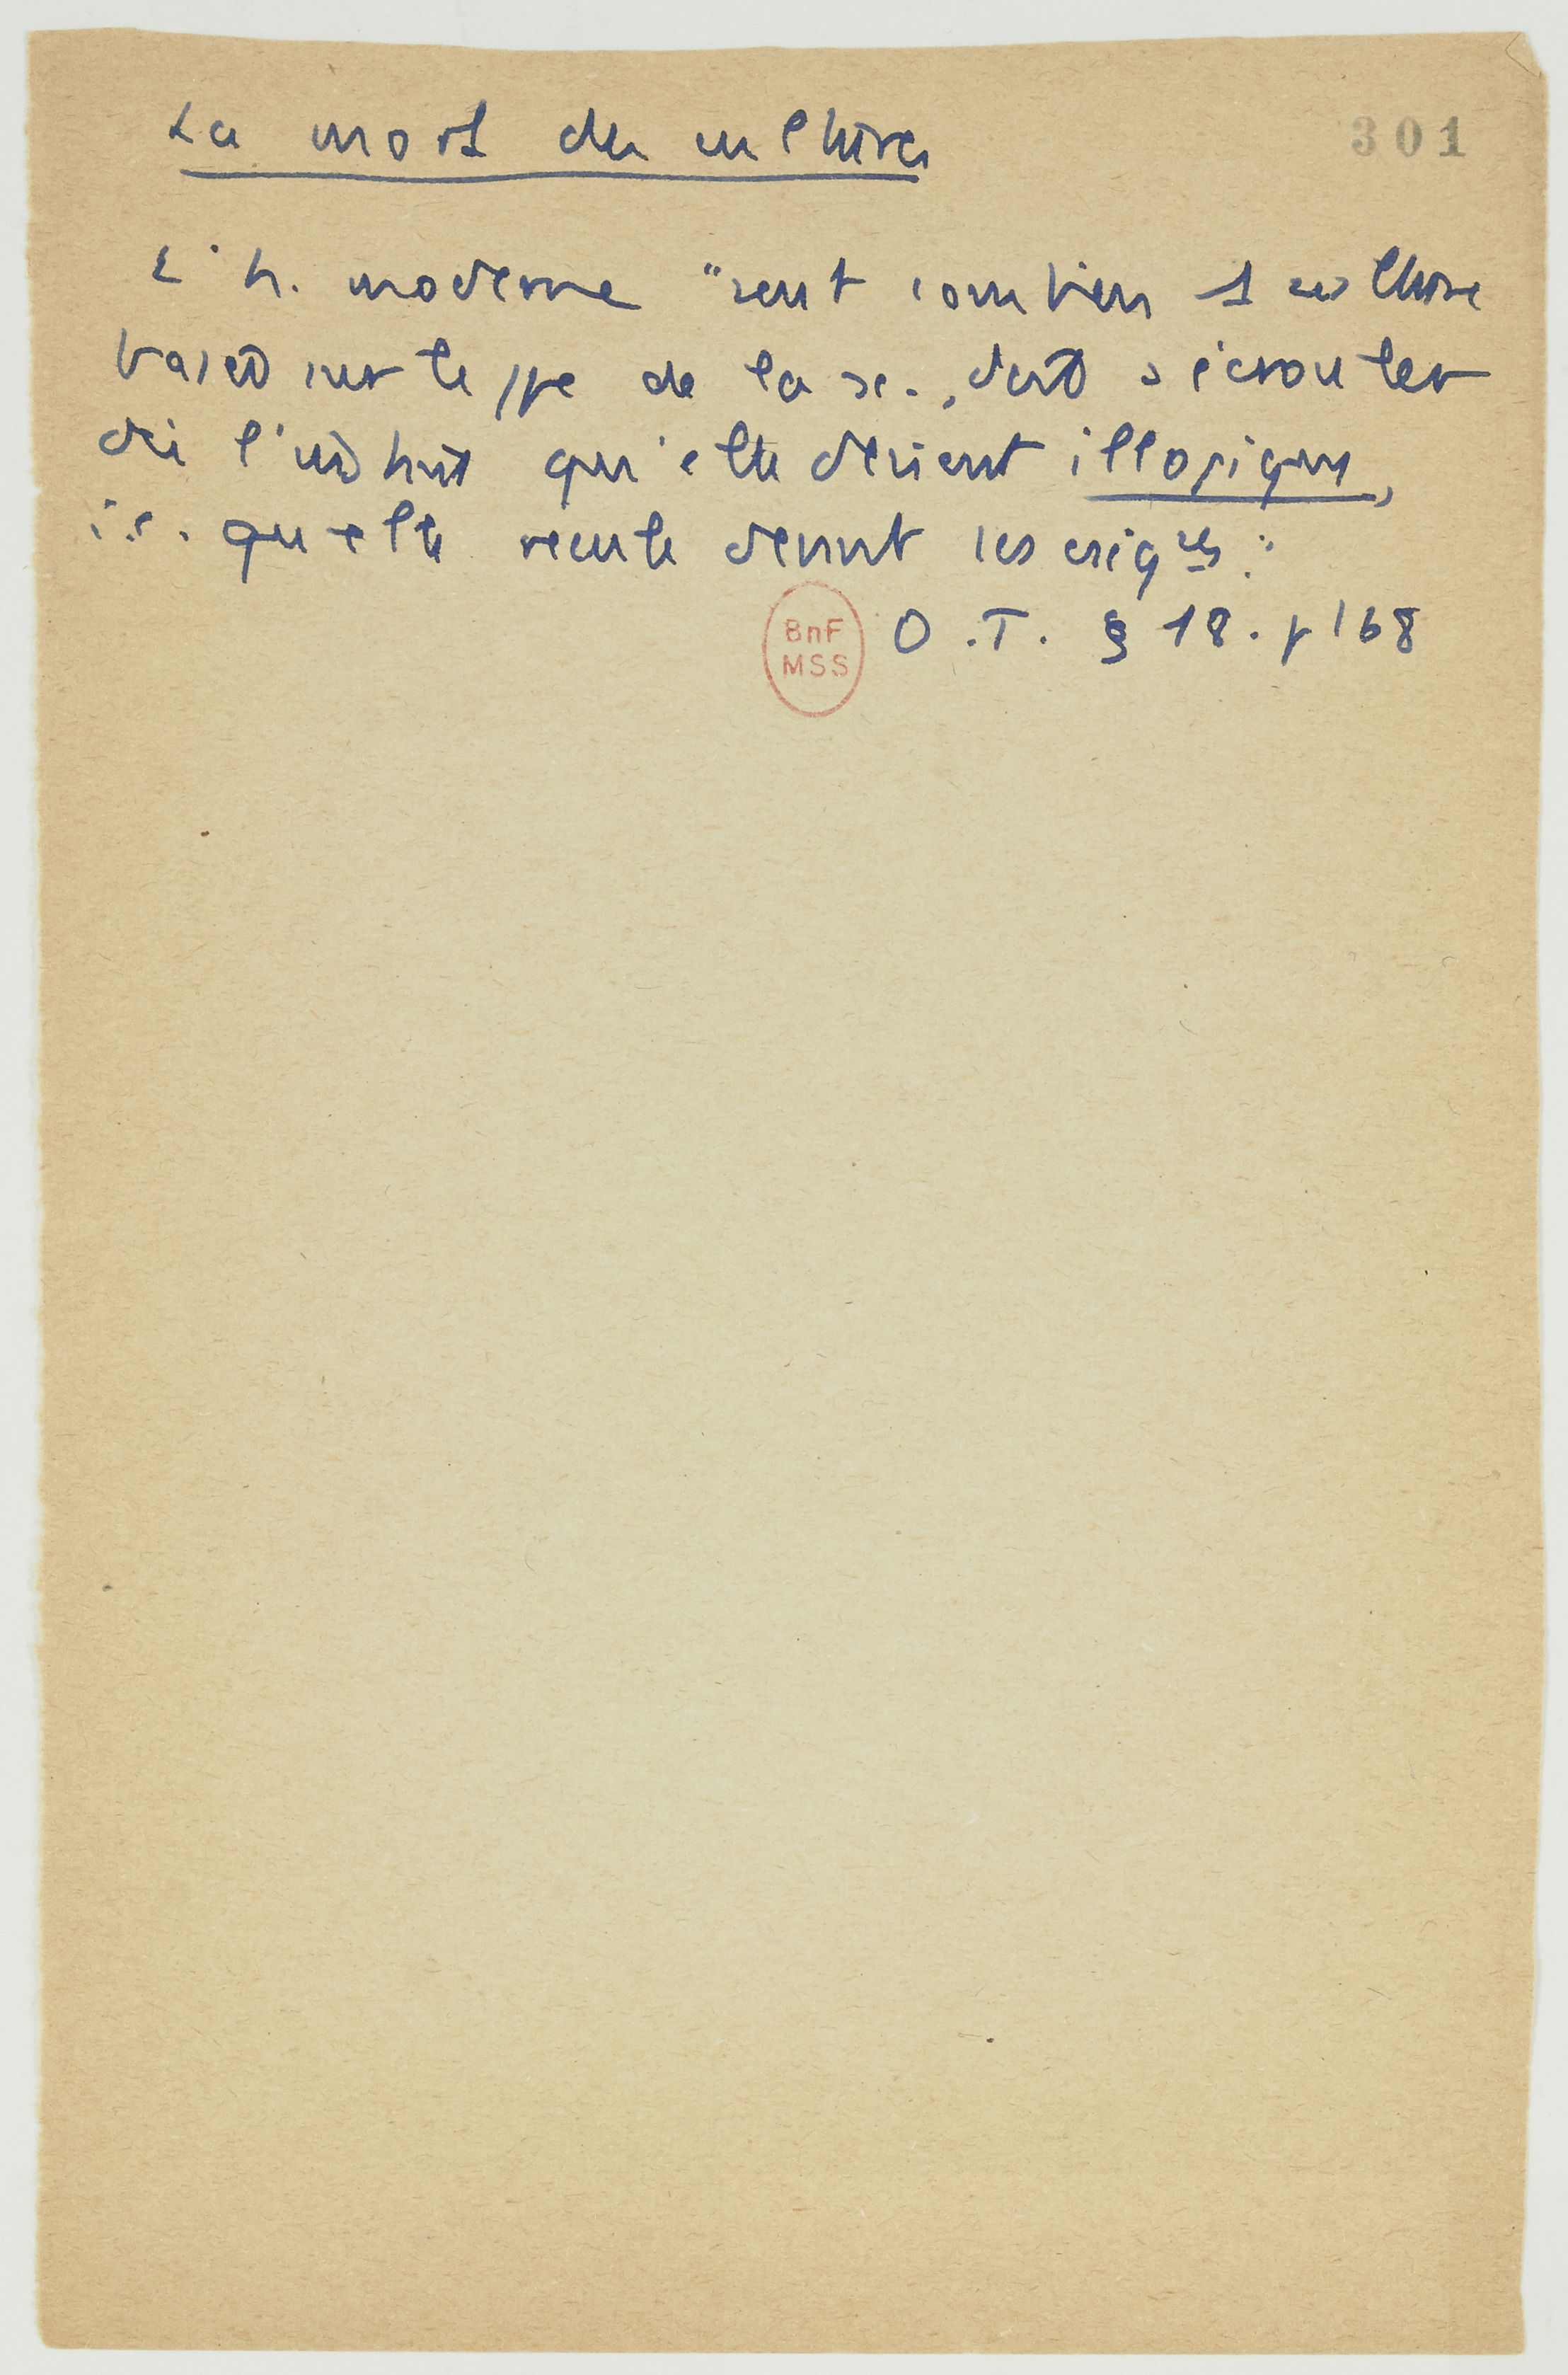 La mort des cultures
301
L'h. moderne "sent combien 1 culture
basée sur le ppe de la sc., doit s'écrouler
dès l'instant qu'elle devient illogique,
i.e. qu'elle recule devant ses
O.T. § 18. p 168
BnF
MSS